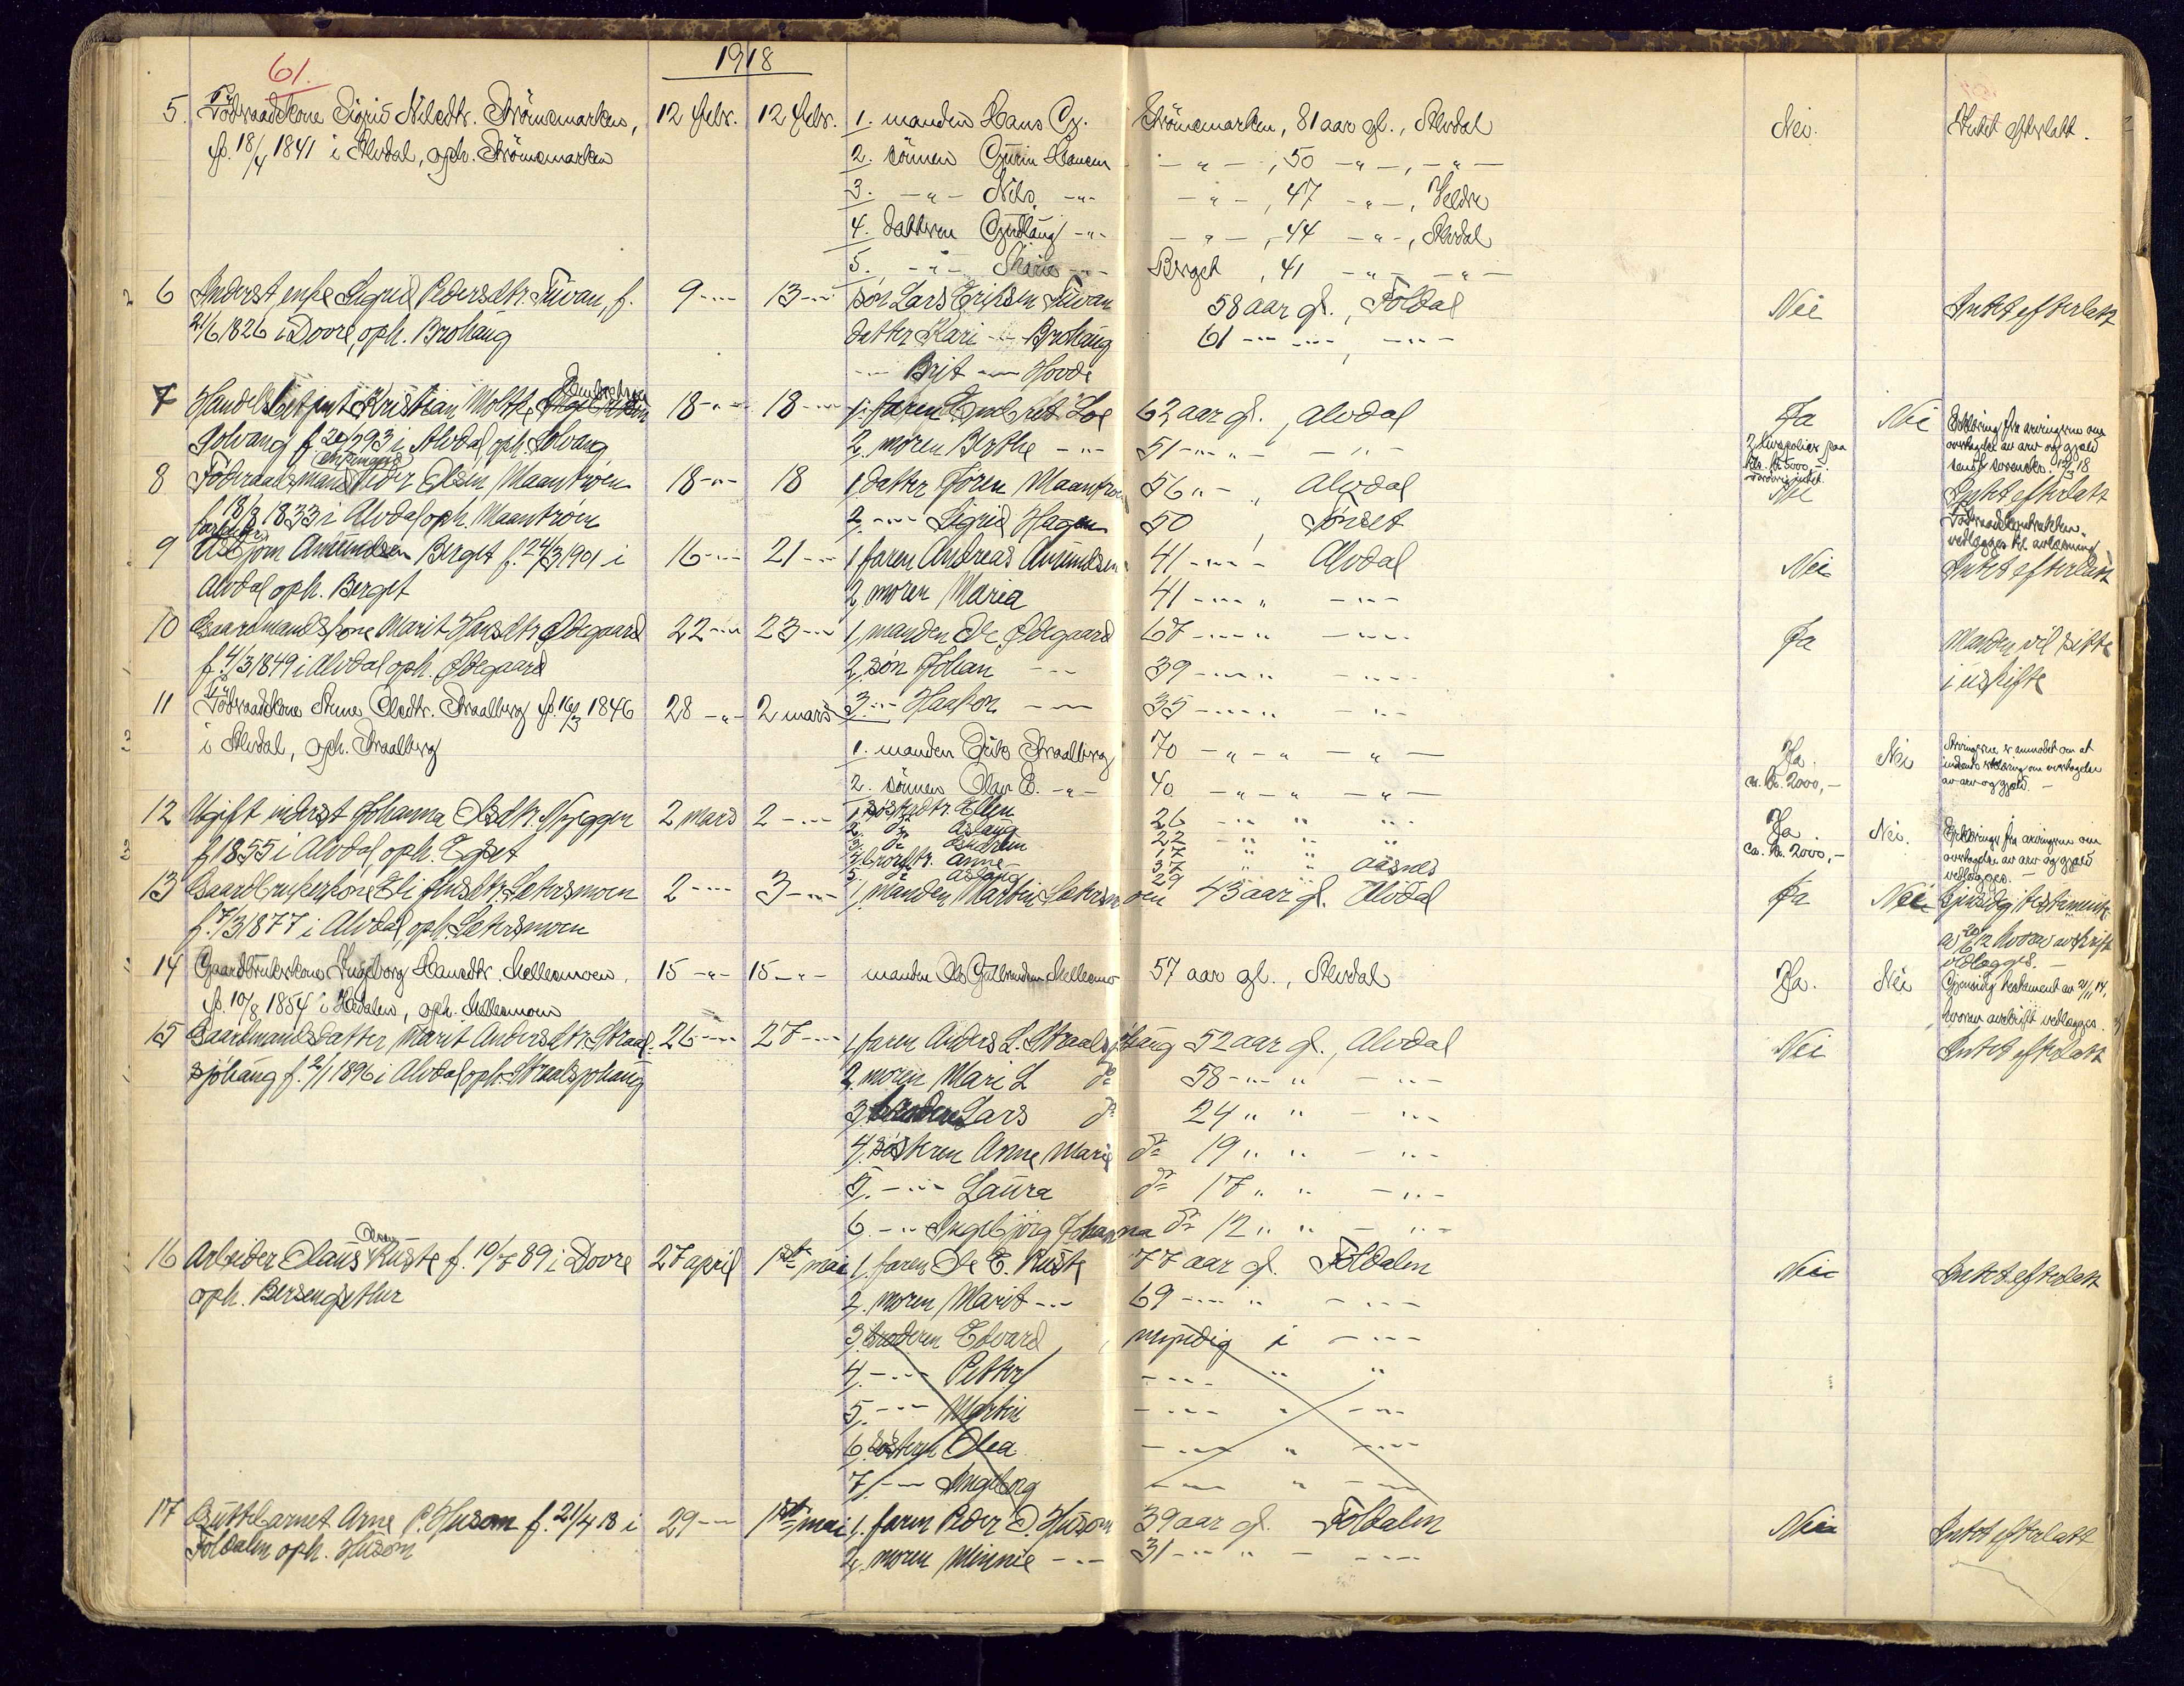 61.
1918
5. Föderaadskone Sigrid Nilsdtr. Strömsmarken, 12 febr. 12 febr. 1. manden Hans Strömsmarken, 81 aar gl., Alvdal Nei. Intet efterlatt.
f. 18/4 1841 i Alvdal, oph. Strömsmarken 2. sönnen Hansen -"-, 50 -"-, -"-
3. -"- Nils -"- -"-, 47 -"-, Veldre
4. datteren Gudlaug -"- -"-, 44 -"-, Alvdal
5. -"- Marie -"- Berget, 41 -"- -"-
6 Inderst enke Sigrid Pedersdtr. f. 9 -"- 13 -"- søn Lars Eriksen 58 aar gl., Foldal Nei Intet efterlatt
21/6 1826 i Dovre, oph. Brohaug datter Kari -"- Brohaug 61 -"- -"-, -"-
-"- Brit -"- Hovde
7 Kristian Moltke 18 -"- 18 -"- 1. faren Embret Loe 62 aar gl., Alvdal Ja Nei Erklæring fra arvingerne om
Solvang f. 93 i Alvdal oph. Solvang 2. moren Berthe -"- 51 -"- -"- 2 livspolicer paa overtagelse av arv og gjæld
kr. 5000,-
8 Föderaadsmand enkemand Peder Olsen Maantrøen 18 -"- 18 1. datter Jøren Maantrøen 56 -"-, Alvdal Nei Intet efterlatt
f. 18/8 1833 i Alvdal oph. Maantrøen 2. -"- Sigrid Hagen 50, Tønset Föderaadskontrakten
vedlægges til avlæsning
9 arbeider Asbjørn Amundsen Berget f. 24/3 1901 i 16 -"- 21 -"- 1. faren Andreas Amundsen 41 -"- Alvdal Nei Intet efterlatt
Alvdal oph. Berget 2. moren Maria 41 -"- -"-
10 Gaardmandskone Marit Hansdtr. Ødegaard 22 -"- 23 -"- 1. manden Ole Ødegaard 67 -"- -"- Ja Manden vil sitte
f. 4/3 1849 i Alvdal oph. Ødegaard 2. søn Johan -"- 39 -"- -"- i uskifte
3. -"- Haakon -"- 35 -"- -"-
11 Föderaadskone Anne Olsdtr. Straalberg f. 16/3 1846 28 -"- 2 mars
i Alvdal, oph. Straalberg 1. manden Erik Straalberg 70 -"- -"- Ja. Nei Arvingerne er anmodet om at
ca. kr. 2000,- indsende erklæring om overtagelse
2. sönnen Olav E. -"- 40 -"- -"- av arv og gjæld. -
12 Ugift inderst Johanna Olsdtr. Nyeggen 2 mars 2 -"- 1. søsterdtr. Ellen 26 -"- -"- Ja. Nei. Erklæring fra arvingerne om
f. 1855 i Alvdal, oph. Egset 2. do Aslaug 22 -"- -"- ca. kr. 2000,- overtagelse av arv og gjæld
3. do Gudrun 17 vedlægges. -
4. brordtr. Anne 37 Aasnes
5. do Aslaug 29
13 Gaardbrukerkone Eli Jensdtr. Sætersmoen 2 -"- 3 -"- 1. manden Martin Sætersmoen 43 aar gl. Alvdal Ja Nei Gjensidig testamente
f. 7/3 1877 i Alvdal, oph. Sætersmoen av hvorav avskrift
vedlægges. -
14 Gaardbrukerkone Ingeborg Hansdtr. Mellesmoen. 15 -"- 15 -"- manden Ole Gulbrandsen Mellesmo 57 aar gl., Alvdal Ja. Nei Gjensidig testament av 21/11 14,
f. 10/8 1854 i Hedalen, oph. Mellesmoen hvorav avskrift vedlægges.
15 Gaardmandsdatter Marit Andersdtr. Straal- 26 -"- 27 -"- 1. faren Anders L. Straalsjøhaug 52 aar gl., Alvdal Nei Intet efterlatt
sjöhaug f. 2/1 1896 i Alvdal oph. Straalsjøhaug 2. moren Mari L do 58 -"- -"-
3. broderen Lars do 24 " " -"-
4. søsteren Anne Marie do 19 " " -"-
5. -"- Laura do 17 " " -"-
6. -"- Ingebjørg Johanna do 12 " " -"-
16 Arbeider Olaus Olsen Ruste f. 10/7 89 i Dovre 27 april 1ste mai 1. faren Ole E. Ruste 77 aar gl. Foldalen Nei Intet efterlatt
oph. Bersengsetter 2. moren Marit -"- 69 -"- -"-
3. broderen Edvard, myndig i -"-
4. -"- Petter -"- " "
5. -"- Martin -"- " -"-
6. søsteren Olea -"- " -"-
7. -"- Ingeborg -"- " -"-
17 Guttebarnet Arne P. Husom f. 21/4 18 i 29 -"- 1ste mai 1. faren Peder O. Husom 39 aar gl. Foldalen Nei Intet efterlatt
Foldalen oph. Husom 2. moren Minnie -"- 31 -"- -"-